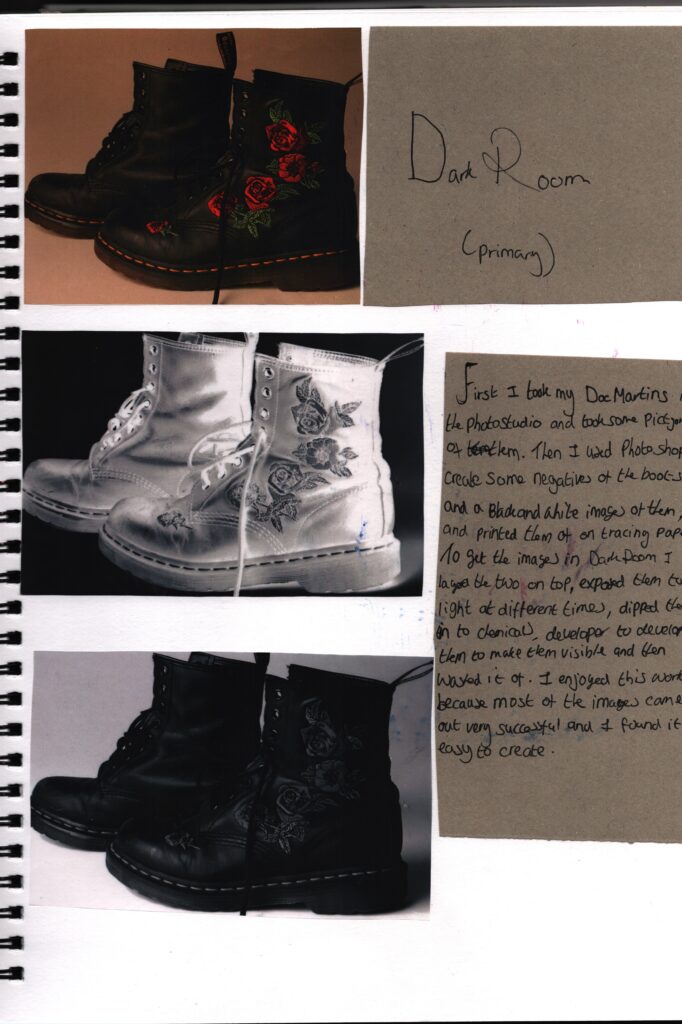 Dark Room
(primary)
First I took my DocMartins
the photostudio and took some
of them. Then I used Photoshop
create some negatives of the boots
and a Black and white images of them,
and printed them of on tracing
To get the images in DarkRoom I
layed the two on top, exposed them
light at different times, dipped
in to chemicals, developer to
them to make them visible and then
washed it of. I enjoyed this work
because most of the images came
out very successful and I found it
easy to create.